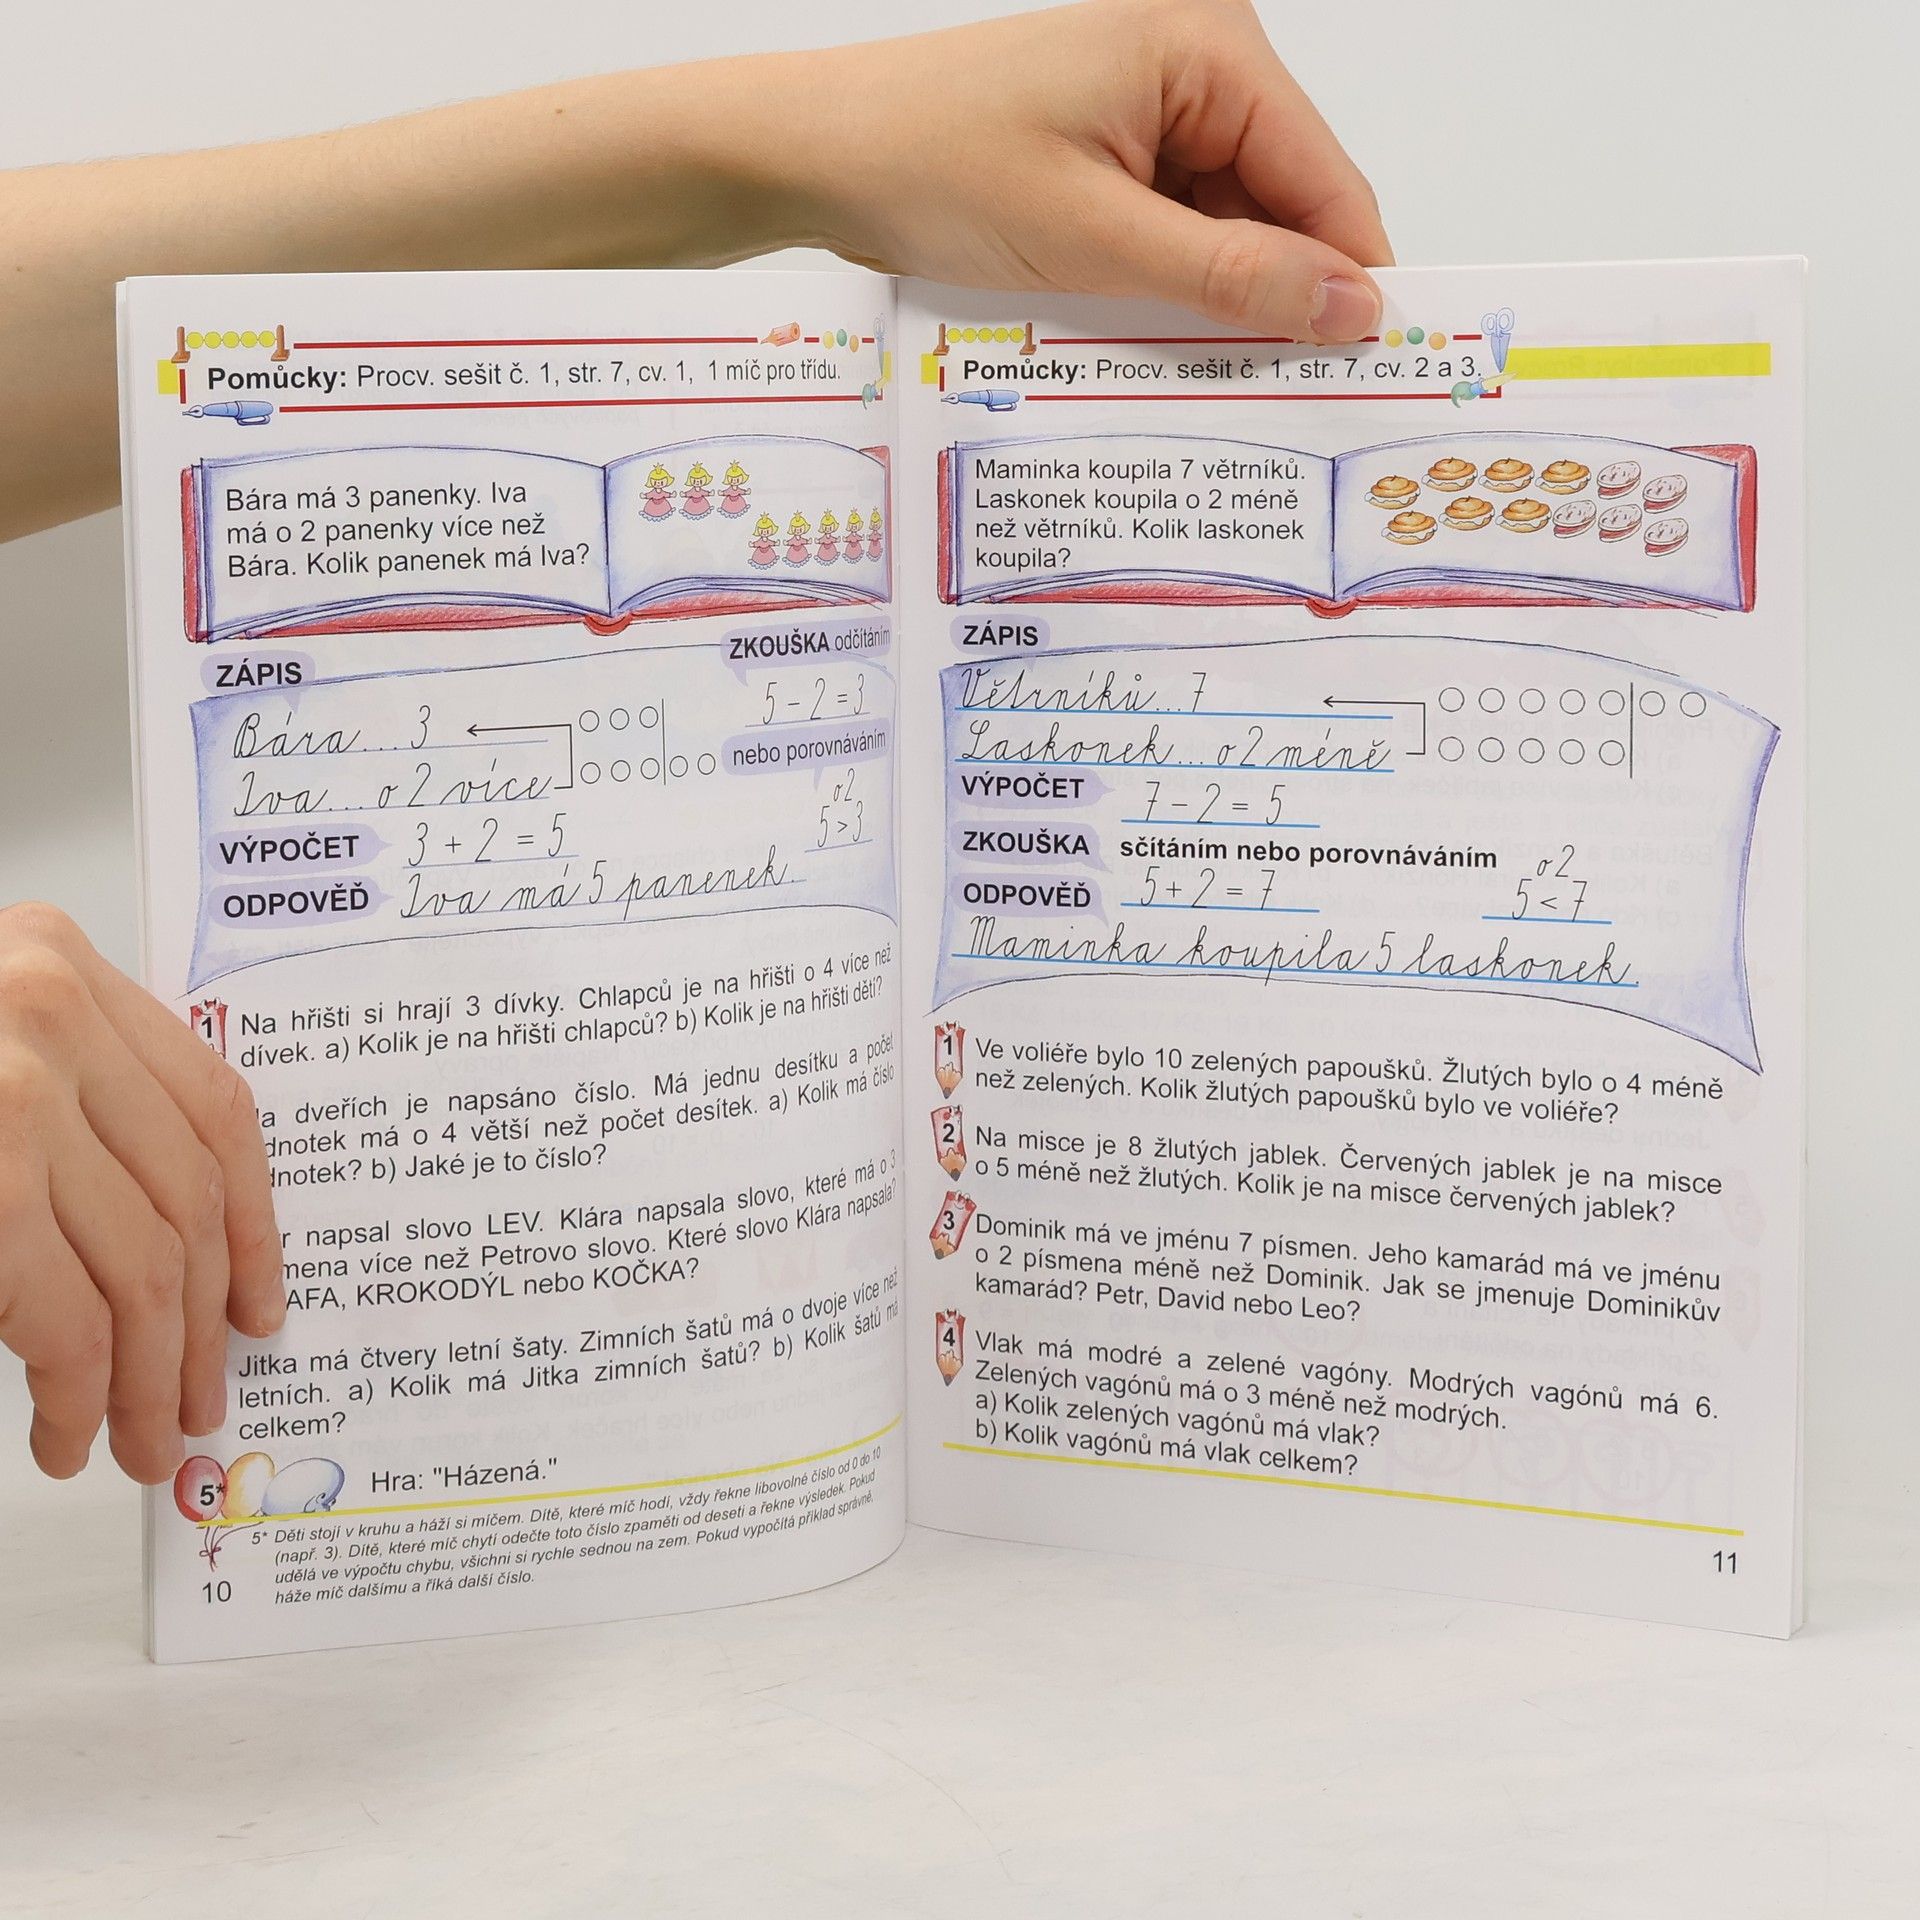 Pomůcky: Procv. sešit č. 1, str. 7, cv. 1, 1 míč pro třídu.
Bára má 3 panenky. Iva
má o 2 panenky více než
Bára. Kolik panenek má Iva?
ZÁPIS
ZKOUŠKA odčítáním
Bára...3
5 - 2 = 3
nebo porovnáváním
Iva...o 2 více
o 2
5 > 3
VÝPOČET
3 + 2 = 5
ODPOVĚĎ
Iva má 5 panenek.
1 Na hřišti si hrají 3 dívky. Chlapců je na hřišti o 4 více než
dívek. a) Kolik je na hřišti chlapců? b) Kolik je na hřišti dětí?
dveřích je napsáno číslo. Má jednu desítku a počet
má o 4 větší než počet desítek. a) Kolik má číslo
b) Jaké je to číslo?
napsal slovo LEV. Klára napsala slovo, které má o 3
více než Petrovo slovo. Které slovo Klára napsala?
KROKODÝL nebo KOČKA?
Jitka má čtvery letní šaty. Zimních šatů má o dvoje více než
letních. a) Kolik má Jitka zimních šatů? b) Kolik šatů má
celkem?
5* Hra: "Házená."
5* Děti stojí v kruhu a háží si míčem. Dítě, které míč hodí, vždy řekne libovolné číslo od 0 do 10
(např. 3). Dítě, které míč chytí odečte toto číslo zpaměti od deseti a řekne výsledek. Pokud
udělá ve výpočtu chybu, všichni si rychle sednou na zem. Pokud vypočítá příklad správně,
háže míč dalšímu a říká další číslo.
10
Pomůcky: Procv. sešit č. 1, str. 7, cv. 2 a 3.
Maminka koupila 7 větrníků.
Laskonek koupila o 2 méně
než větrníků. Kolik laskonek
koupila?
ZÁPIS
Větrníků...7
Laskonek...o 2 méně
VÝPOČET
7 - 2 = 5
ZKOUŠKA sčítáním nebo porovnáváním
5 + 2 = 7
o 2
5 < 7
ODPOVĚĎ
Maminka koupila 5 laskonek.
1 Ve voliéře bylo 10 zelených papoušků. Žlutých bylo o 4 méně
než zelených. Kolik žlutých papoušků bylo ve voliéře?
2 Na misce je 8 žlutých jablek. Červených jablek je na misce
o 5 méně než žlutých. Kolik je na misce červených jablek?
3 Dominik má ve jménu 7 písmen. Jeho kamarád má ve jménu
o 2 písmena méně než Dominik. Jak se jmenuje Dominikův
kamarád? Petr, David nebo Leo?
4 Vlak má modré a zelené vagóny. Modrých vagónů má 6.
Zelených vagónů má o 3 méně než modrých.
a) Kolik zelených vagónů má vlak?
b) Kolik vagónů má vlak celkem?
11